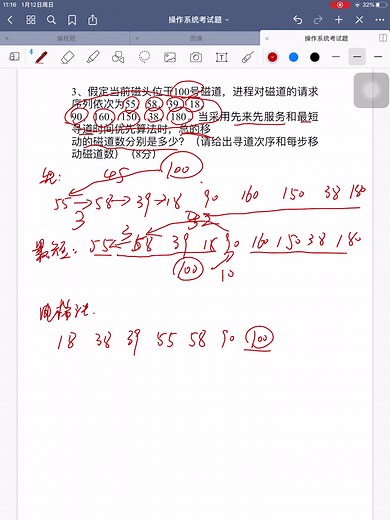 11:16 1月12日周日
32%
操作系统考试题
编程题
图像
操作系统考试题
3、假定当前磁头位于100号磁道，进程对磁道的请求
序列依次为55，58，39，18，
90，160，150，38，180。当采用先来先服务和最短
寻道时间优先算法时，总的移
动的磁道数分别是多少？（请给出寻道次序和每步移
动磁道数）（8分）
先: 45 100
55→58→39→18 90 160 150 38 180
3 32
最短: 55 58 39 18 90 160 150 38 180
3
100 10
电梯法.
18 38 39 55 58 90 100